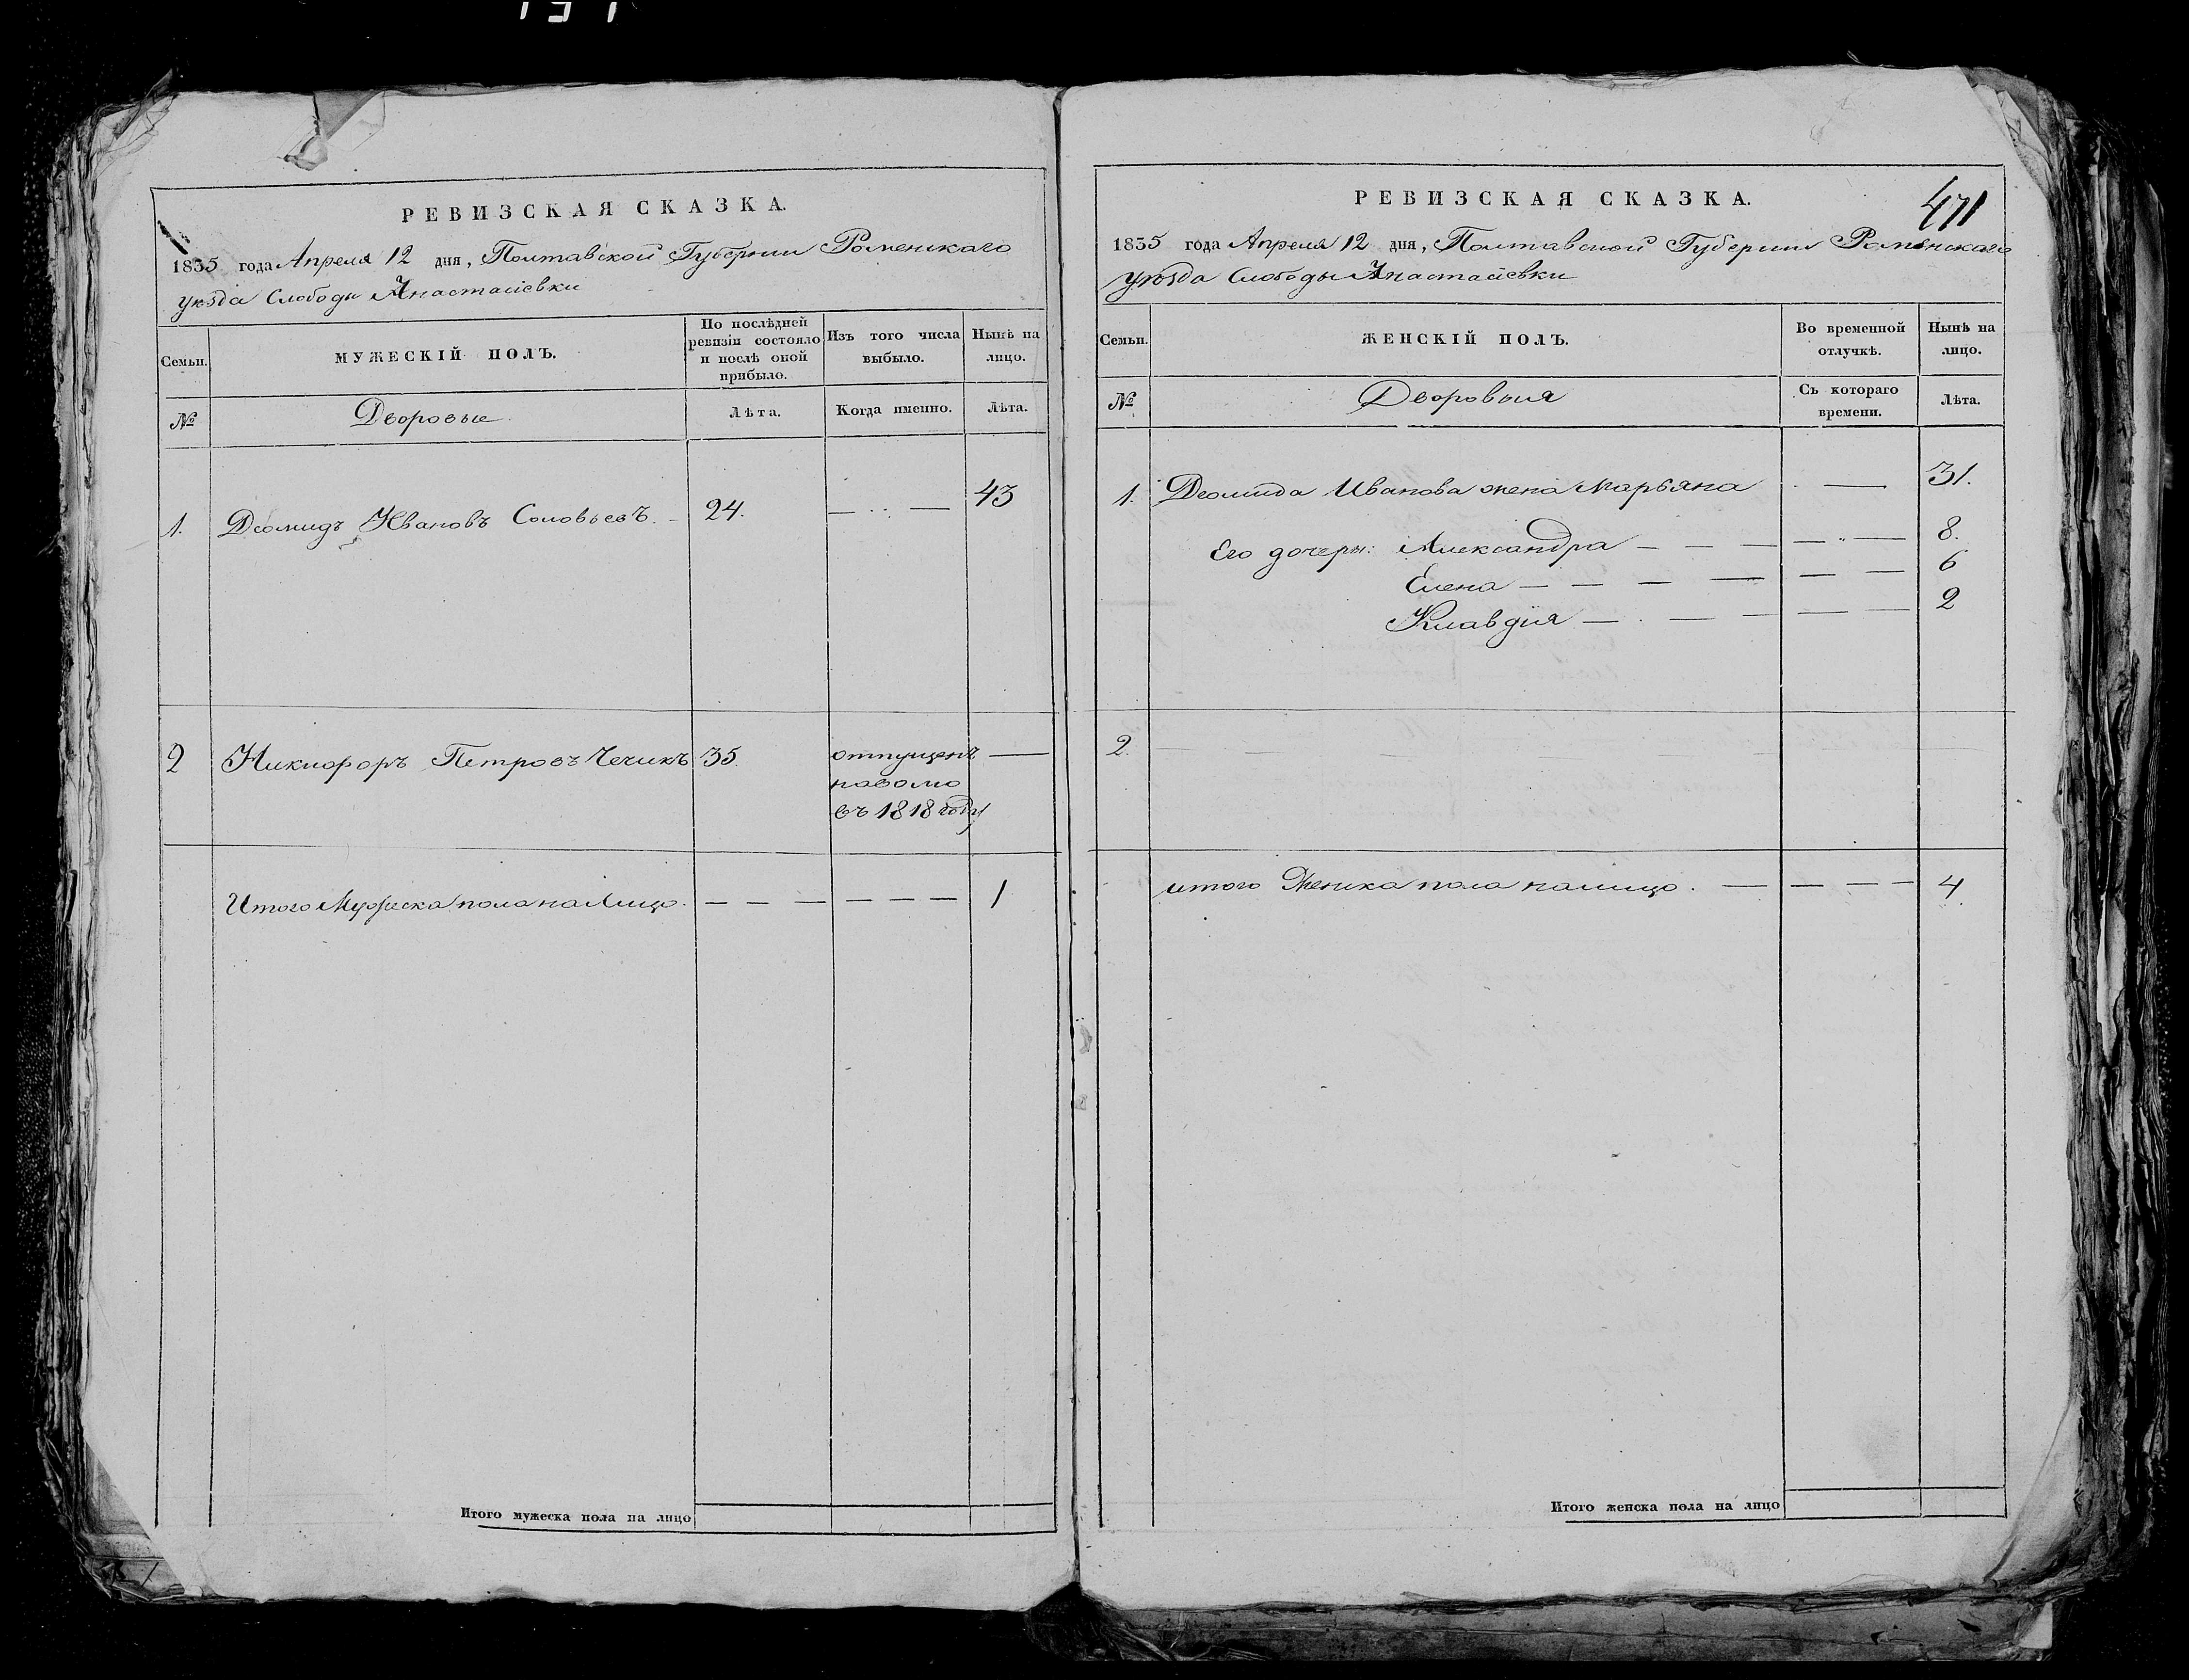 РЕВИЗСКАЯ СКАЗКА.
1835 года Апреля 12 дня, Полтавской Губернии Роменскаго
уезда Слободы Анастасіевки
Семьи.
МУЖЕСКІЙ ПОЛЪ.
По послѣдней ревизіи состояло и послѣ оной прибыло.
Изъ того числа выбыло.
Нынѣ на лицо.
№
Дворовые
Лѣта.
Когда именно.
Лѣта.
1. Деомидъ Ивановъ Соловьевъ. 24. 43
2 Никифоръ Петровъ Чечикъ 35. отпущенъ
наволю
въ 1818 году
Итого Мужеска пола на Лицо. 1
Итого мужеска пола на лицо
471
РЕВИЗСКАЯ СКАЗКА.
1835 года Апреля 12 дня, Полтавской Губернии Роменскаго
уезда Слободы Анастасіевки
Семьи.
ЖЕНСКІЙ ПОЛЪ.
Во временной отлучкѣ.
Нынѣ на лицо.
№
Дворовыя
Съ котораго времени.
Лѣта.
1. Деомида Иванова жена Марьяна 31.
Его дочери: Александра 8.
Елена 6
Клавдія 2
2.
итого Женска пола налицо. 4
Итого женска пола на лицо